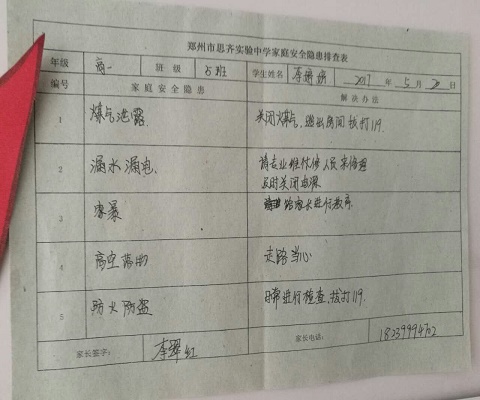 郑州市思齐实验中学家庭安全隐患排查表
年级 高一 班级 5班 学生姓名 李 2017 年 5 月 20 日
编号 家庭安全隐患 解决办法
1 煤气泄露. 关闭煤气,跑出房间,拔打119.
2 漏水漏电、 请专业维修人员来修理
及时关闭电源
3 家暴 给家长进行教育.
4 高空落物 走路当心
5 防火防盗 日常进行检查,拔打119.
家长签字: 李 红 家长电话: 18239994702